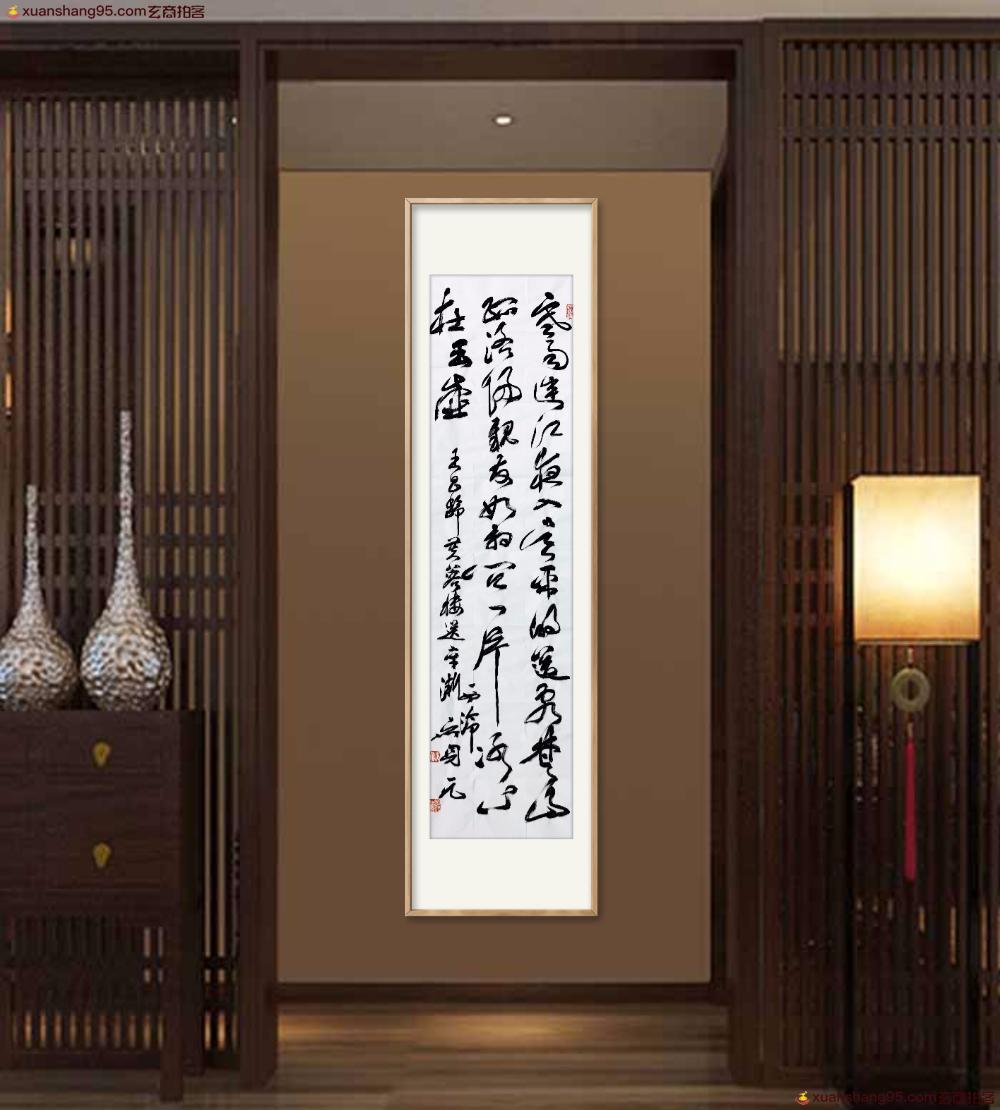 xuanshang95.com玄商拍客
寒雨连江夜入吴平明送客楚山
孤洛陽親友如相问一片冰心
在玉壶
王昌龄芙蓉楼送辛渐
西泠
xuanshang95.com玄商拍客